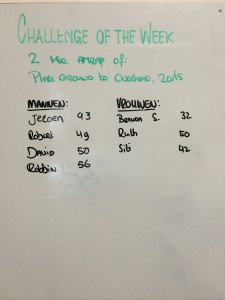 CHALLENGE OF THE WEEK
2 Min. AMRAP of:
Plate Ground to Overhead, 20/15
MANNEN:
Jeroen 43
Robert 49
David 50
Robbin 56
VROUWEN:
S. 32
Ruth 50
Siti 42